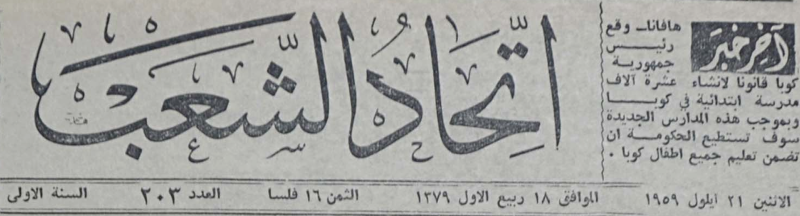 آخر خبر
هافانا_ وقع
رئيس
جمهورية
كوبا قانونا لانشاء عشرة آلاف
مدرسة ابتدائية في كوبا
وبموجب هذه المدارس الجديدة
سوف تستطيع الحكومة ان
تضمن تعليم جميع اطفال كوبا .
اتحاد الشعب
الاثنين ٢١ ايلول ١٩٥٩ الموافق ١٨ ربيع الاول ١٣٧٩ الثمن ١٦ فلسا العدد ٢٠٣ السنة الاولى